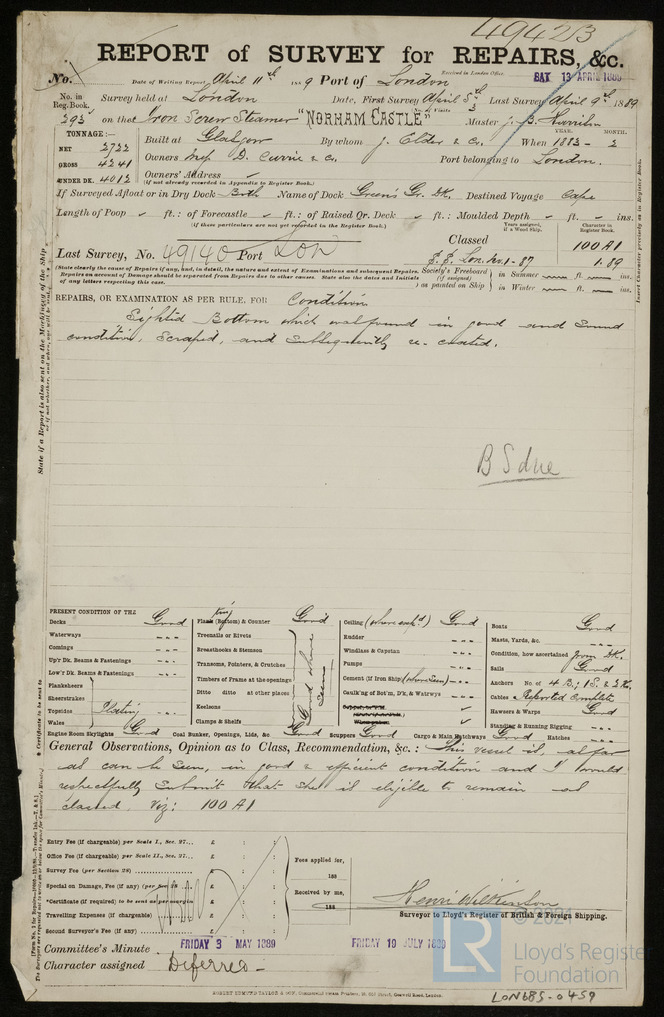 49423
REPORT of SURVEY for REPAIRS, &c.
No. Date of Writing Report April 11th 1889 Port of London Received in London Office SAT 13 APRIL 1889
No. in Reg. Book. Survey held at London Date, First Survey April 5th Last Survey April 9th 1889
393 on the Iron Screw Steamer "NORHAM CASTLE" Master
TONNAGE:— Built at Glasgow By whom J. Elder & Co. When 1883 - 2 YEAR. MONTH.
NET 2733
GROSS 4241 Owners Messrs D. Currie & Co. Port belonging to London.
UNDER DK. 4013 Owners' Address (if not already recorded in Appendix to Register Book.)
If Surveyed Afloat or in Dry Dock Both Name of Dock Green's Gr. DK. Destined Voyage Cape
Length of Poop - ft.: of Forecastle - ft.: of Raised Qr. Deck - ft.: Moulded Depth - ft. - ins.
(if these particulars are not yet recorded in the Register Book.) Years assigned, if a Wood Ship. Character in Register Book.
Last Survey, No. 49140 Port LON Classed 100 A1
S.S. Lon. No.1-87 1.89
(State clearly the cause of Repairs if any, and, in detail, the nature and extent of Examinations and subsequent Repairs. Repairs on account of Damage should be separated from Repairs due to other causes. State also the dates and Initials of any letters respecting this case.
Society's Freeboard (if assigned) as painted on Ship in Summer ft. ins.
in Winter ft. ins.
REPAIRS, OR EXAMINATION AS PER RULE, FOR Condition
Sighted Bottom which was found in good and sound
condition, scraped, and subsequently re-coated.
B S due
PRESENT CONDITION OF THE
Decks Good
Waterways " " "
Comings " " "
Up'r Dk. Beams & Fastenings " " "
Low'r Dk. Beams & Fastenings " " "
Planksheers
Sheerstrakes
Topsides Plating
Wales
Engine Room Skylights Good
Plating (Bottom) & Counter Good
Treenails or Rivets
Breasthooks & Stemson
Transoms, Pointers, & Crutches
Timbers of Frame at the openings
Ditto ditto at other places
Keelsons
Clamps & Shelfs
Good where seen
Coal Bunker, Openings, Lids, &c. Good
Ceiling (where exp'd) Good
Rudder " " "
Windlass & Capstan " " "
Pumps " " "
Cement (if Iron Ship) (where seen) " " "
Caulk'ng of Bot'm, D'k, & Watrwys " " "
Scuppers Good Cargo & Main Hatchways Good
Boats Good
Masts, Yards, &c. " " "
Condition, how ascertained from DK.
Sails Good
Anchors No. of 4 B., 1 S. & 2 K.
Cables Reported Complete
Hawsers & Warps Good
Standing & Running Rigging " " "
Hatches " " "
General Observations, Opinion as to Class, Recommendation, &c.: This vessel is, as far
as can be seen, in good & efficient condition and I would
respectfully submit that she is eligible to remain as
classed, Viz: 100 A1
Entry Fee (if chargeable) per Scale I., Sec. 27... £ : :
Office Fee (if chargeable) per Scale II., Sec. 27... £ : :
Survey Fee (per Section 28) £ : :
Special on Damage, Fee (if any) (per Sec. 28 £ : :
*Certificate (if required) to be sent as per margin £ : :
Travelling Expenses (if chargeable) £ : :
Second Surveyor's Fee (if any) £ : :
Fees applied for,
188
Received by me,
188
Henri Wilkinson
Surveyor to Lloyd's Register of British & Foreign Shipping.
Committee's Minute FRIDAY 3 MAY 1889 FRIDAY 19 JULY 1889
Character assigned Deferred
© 2021
LR
Lloyd's Register
Foundation
LON685-0459